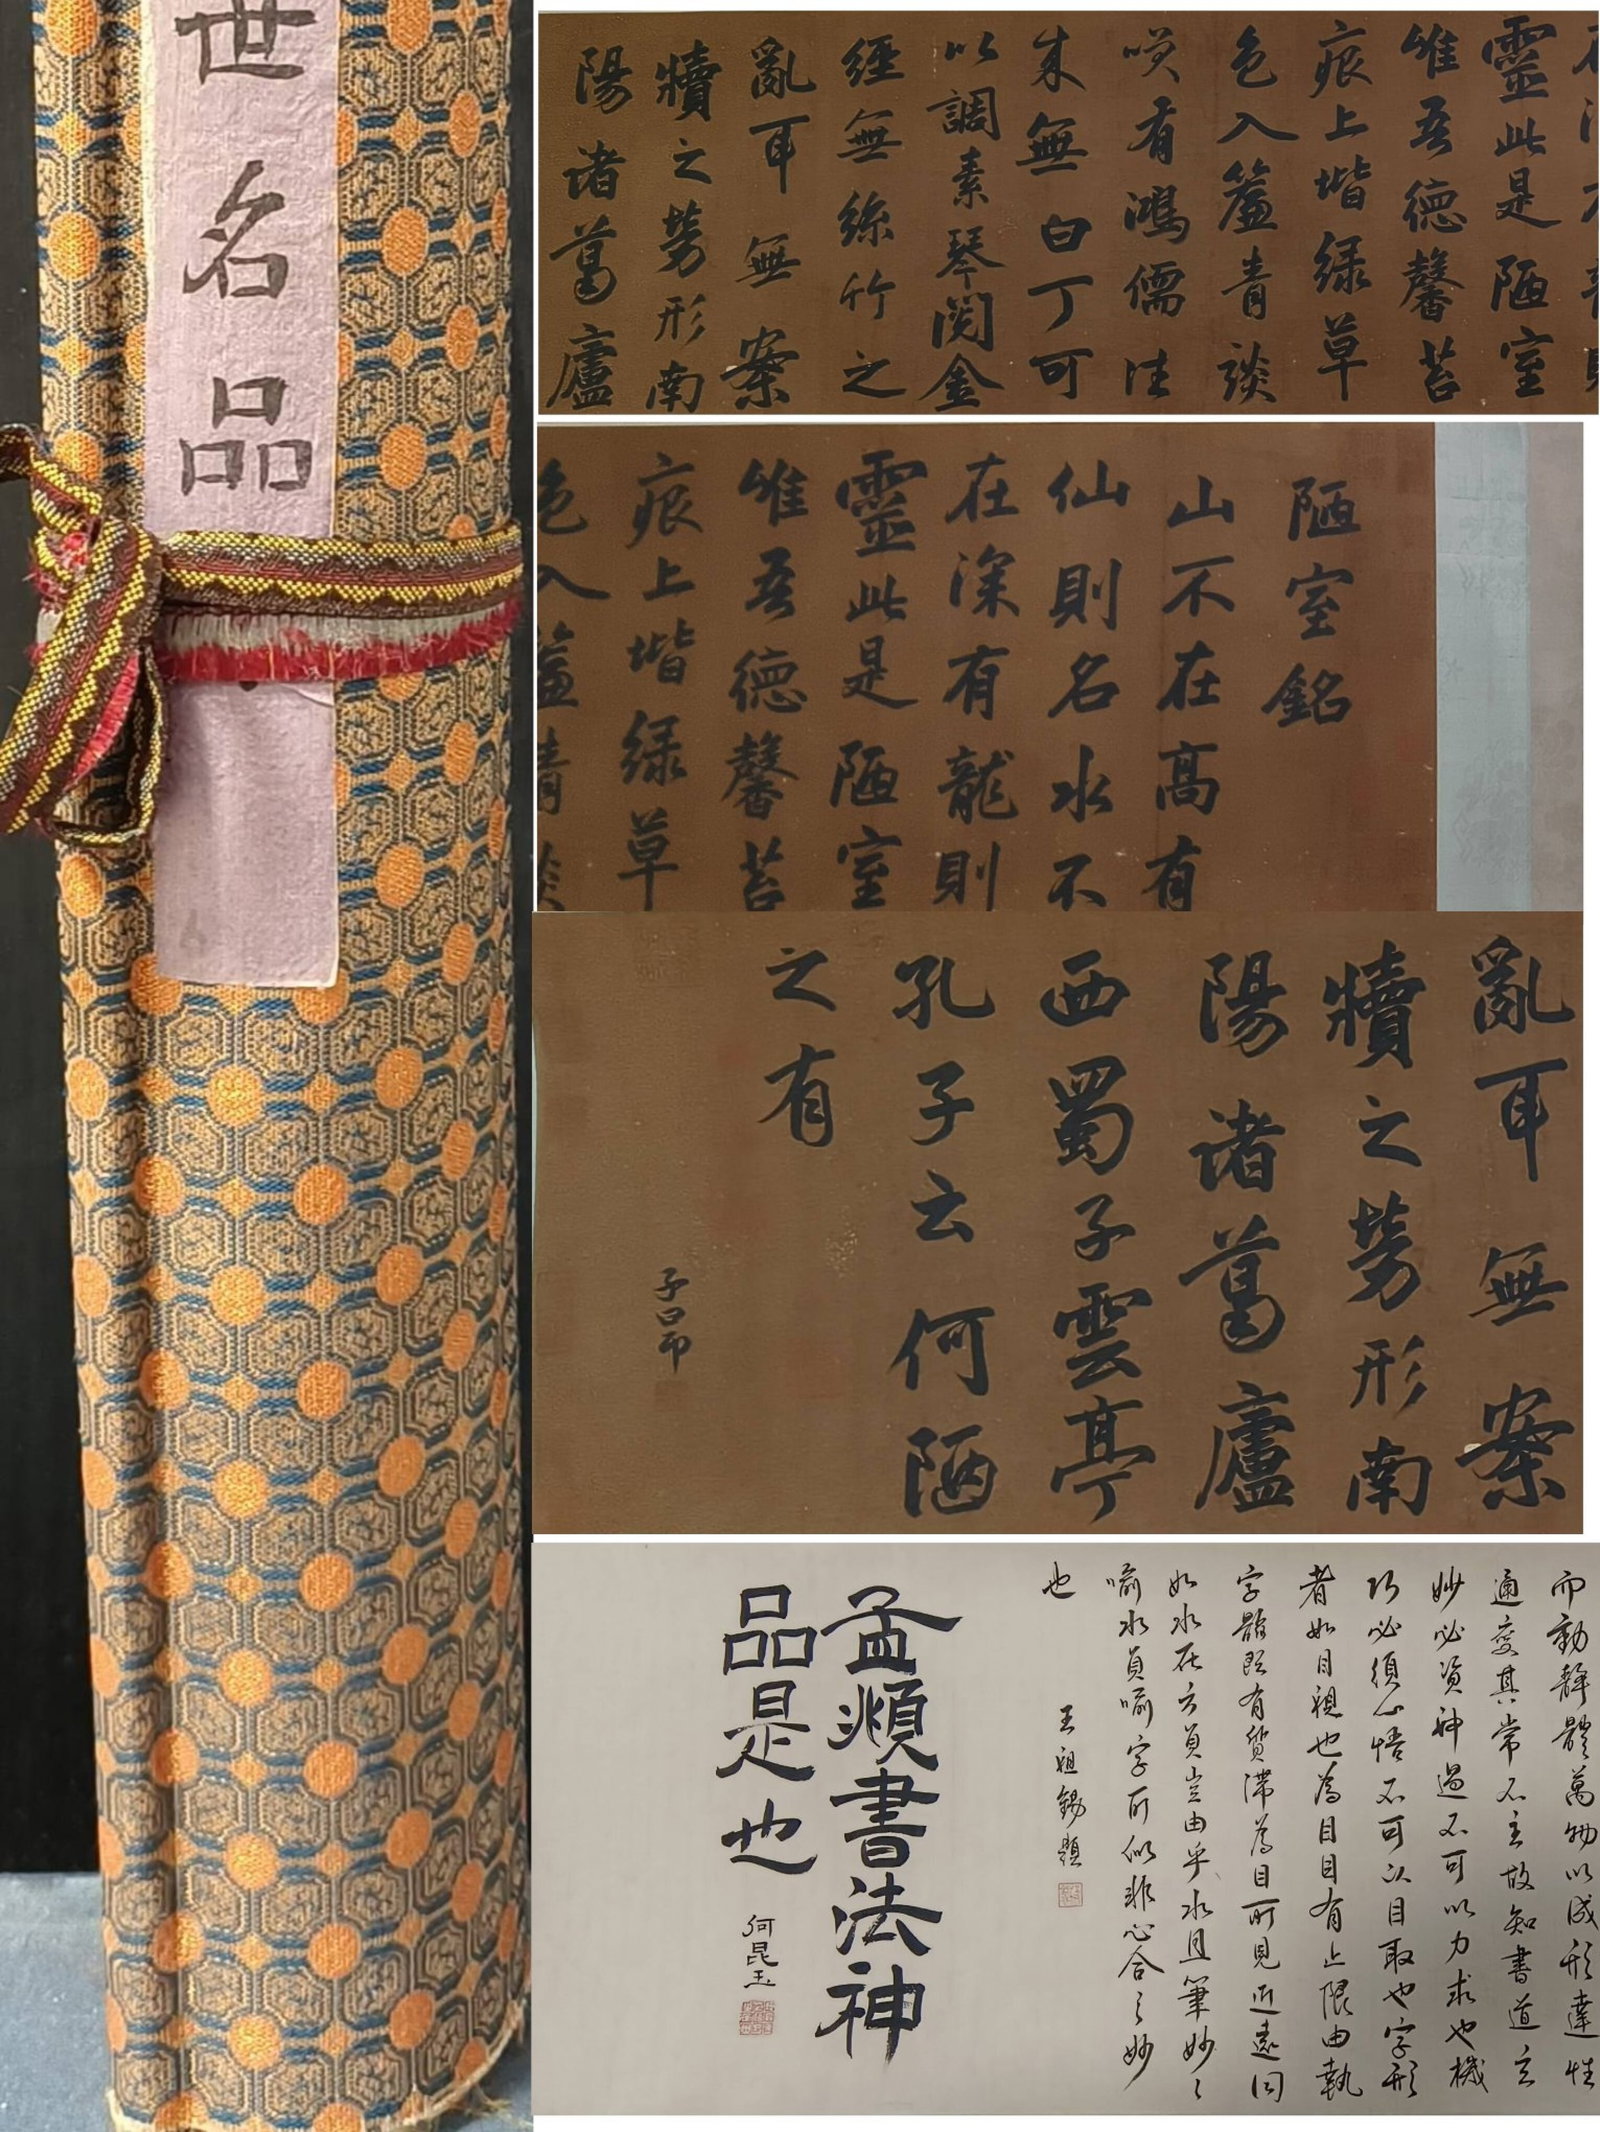 世名品
靈此是陋室
唯吾德馨苔
痕上堦緑草
色入簾青談
笑有鴻儒往
來無白丁可
以調素琴閱金
經無絲竹之
亂耳無案
牘之勞形南
陽诸葛廬
陋室銘
山不在高有
仙則名水不
在深有龍則
靈此是陋室
唯吾德馨苔
痕上堦緑草
色入簾青談
亂耳無案
牘之勞形南
陽诸葛廬
西蜀子雲亭
孔子云何陋
之有
子昂
而動靜體萬物以成形達性
通變其常不主故知書道玄
妙必資神遇不可以力求也機
巧必須心悟不可以目取也字形
者如目視也為目目有止限由執
字體既有質滯為目所見近遠同
如水在方員豈由乎水且筆妙
喻水員喻字所似非心合之妙
也
王祖錫題
孟頫書法神
品是也
何昆玉